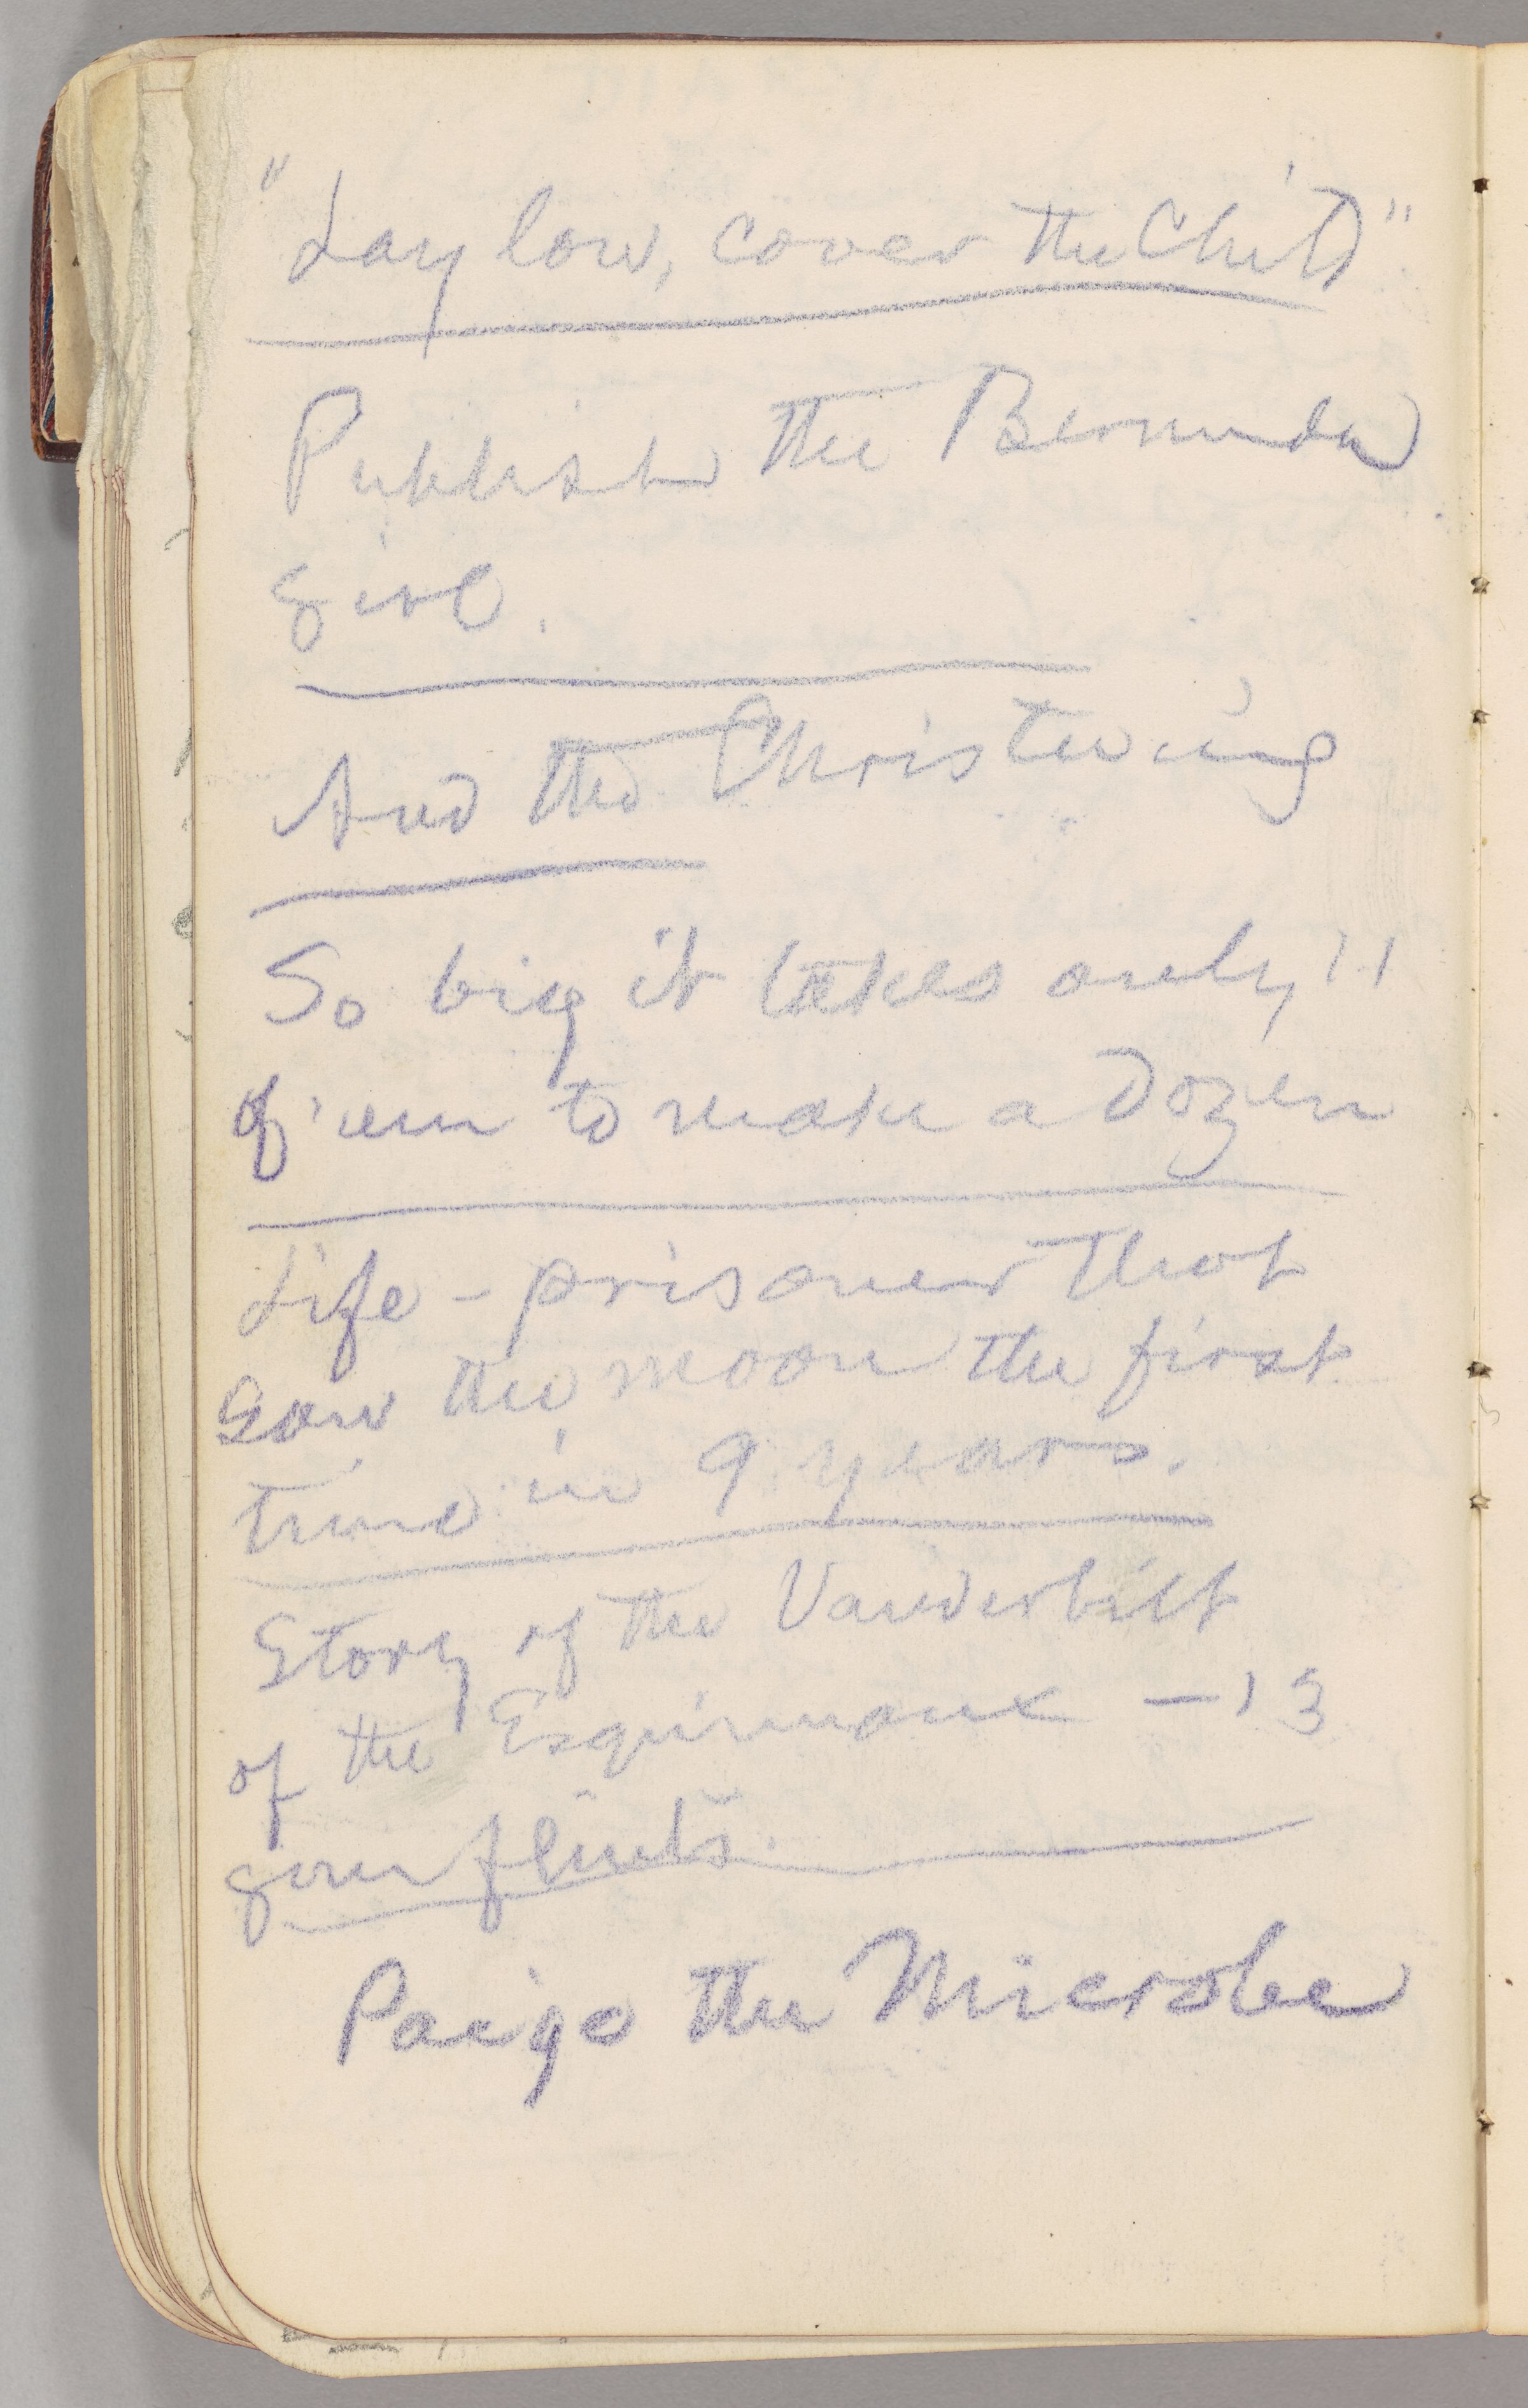 "Lay low, cover the Child"
Publish the Bermuda
girl.
And the Christening
So big it takes only 11
of 'em to make a dozen
Life-prisoner that
saw the moon the first
time in 9 years.
Story of the Vanderbilt
of the Esquimaux — 13
gun flints.
Paige the Microbe